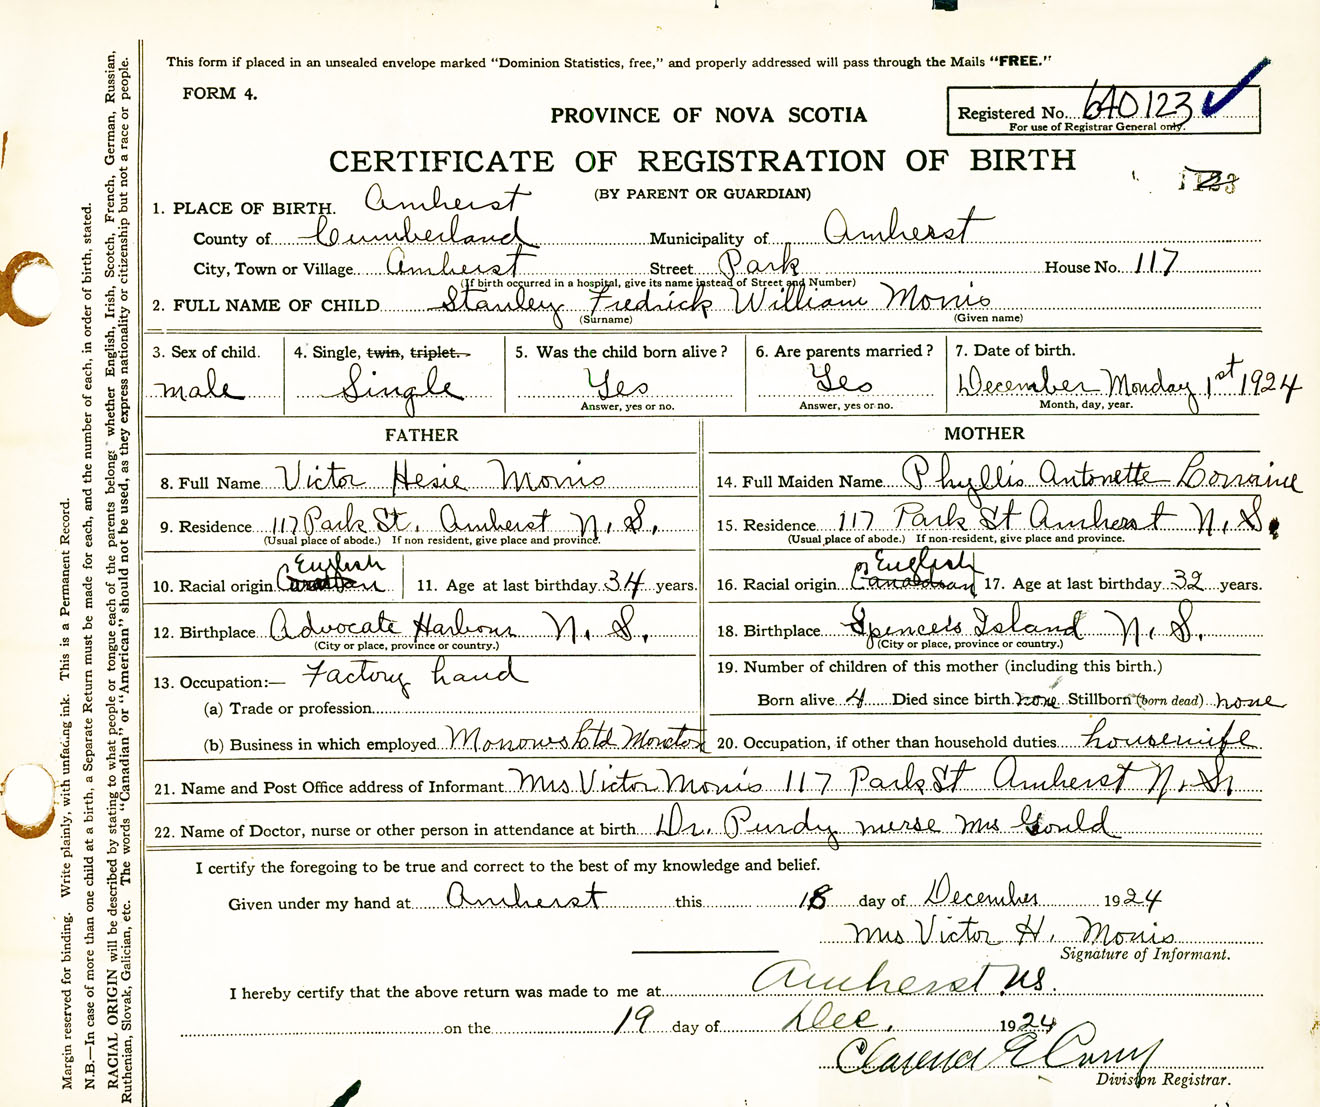 This form if placed in an unsealed envelope marked "Dominion Statistics, free," and properly addressed will pass through the Mails "FREE."
FORM 4.
PROVINCE OF NOVA SCOTIA
Registered No. 640123
For use of Registrar General only.
CERTIFICATE OF REGISTRATION OF BIRTH
(BY PARENT OR GUARDIAN)
1. PLACE OF BIRTH. Amherst
County of Cumberland Municipality of Amherst
City, Town or Village Amherst Street Park House No. 117
(If birth occurred in a hospital, give its name instead of Street and Number)
2. FULL NAME OF CHILD Stanley Fredrick William Morris
(Surname) (Given name)
3. Sex of child. 4. Single, twin, triplet. 5. Was the child born alive? 6. Are parents married? 7. Date of birth.
male Single Yes Yes December Monday 1st 1924
Answer, yes or no. Answer, yes or no. Month, day, year.
FATHER MOTHER
8. Full Name Victor Hesie Morris 14. Full Maiden Name Phyllis Antonette Lorraine
9. Residence 117 Park St. Amherst N. S. 15. Residence 117 Park St Amherst N. S.
(Usual place of abode.) If non resident, give place and province. (Usual place of abode.) If non-resident, give place and province.
English English
10. Racial origin Canadian 11. Age at last birthday 34 years. 16. Racial origin Canadian 17. Age at last birthday 32 years.
12. Birthplace Advocate Harbour N. S. 18. Birthplace Spencers Island N. S.
(City or place, province or country.) (City or place, province or country.)
13. Occupation:— Factory hand 19. Number of children of this mother (including this birth.)
(a) Trade or profession Born alive 4 Died since birth none Stillborn (born dead) none
(b) Business in which employed Ltd Moncton 20. Occupation, if other than household duties housewife
21. Name and Post Office address of Informant Mrs Victor Morris 117 Park St Amherst N. S.
22. Name of Doctor, nurse or other person in attendance at birth Dr. Purdy nurse Mrs Gould
I certify the foregoing to be true and correct to the best of my knowledge and belief.
Given under my hand at Amherst this 18 day of December 1924
Mrs Victor H. Morris
Signature of Informant.
I hereby certify that the above return was made to me at Amherst N.S.
on the 19 day of Dec. 1924
Clarence E
Division Registrar.
Margin reserved for binding. Write plainly, with unfading ink. This is a Permanent Record.
N.B.—In case of more than one child at a birth, a Separate Return must be made for each, and the number of each, in order of birth, stated.
RACIAL ORIGIN will be described by stating to what people or tongue each of the parents belongs whether English, Irish, Scotch, French, German, Russian,
Ruthenian, Slovak, Galician, etc. The words "Canadian" or "American" should not be used, as they express nationality or citizenship but not a race or people.